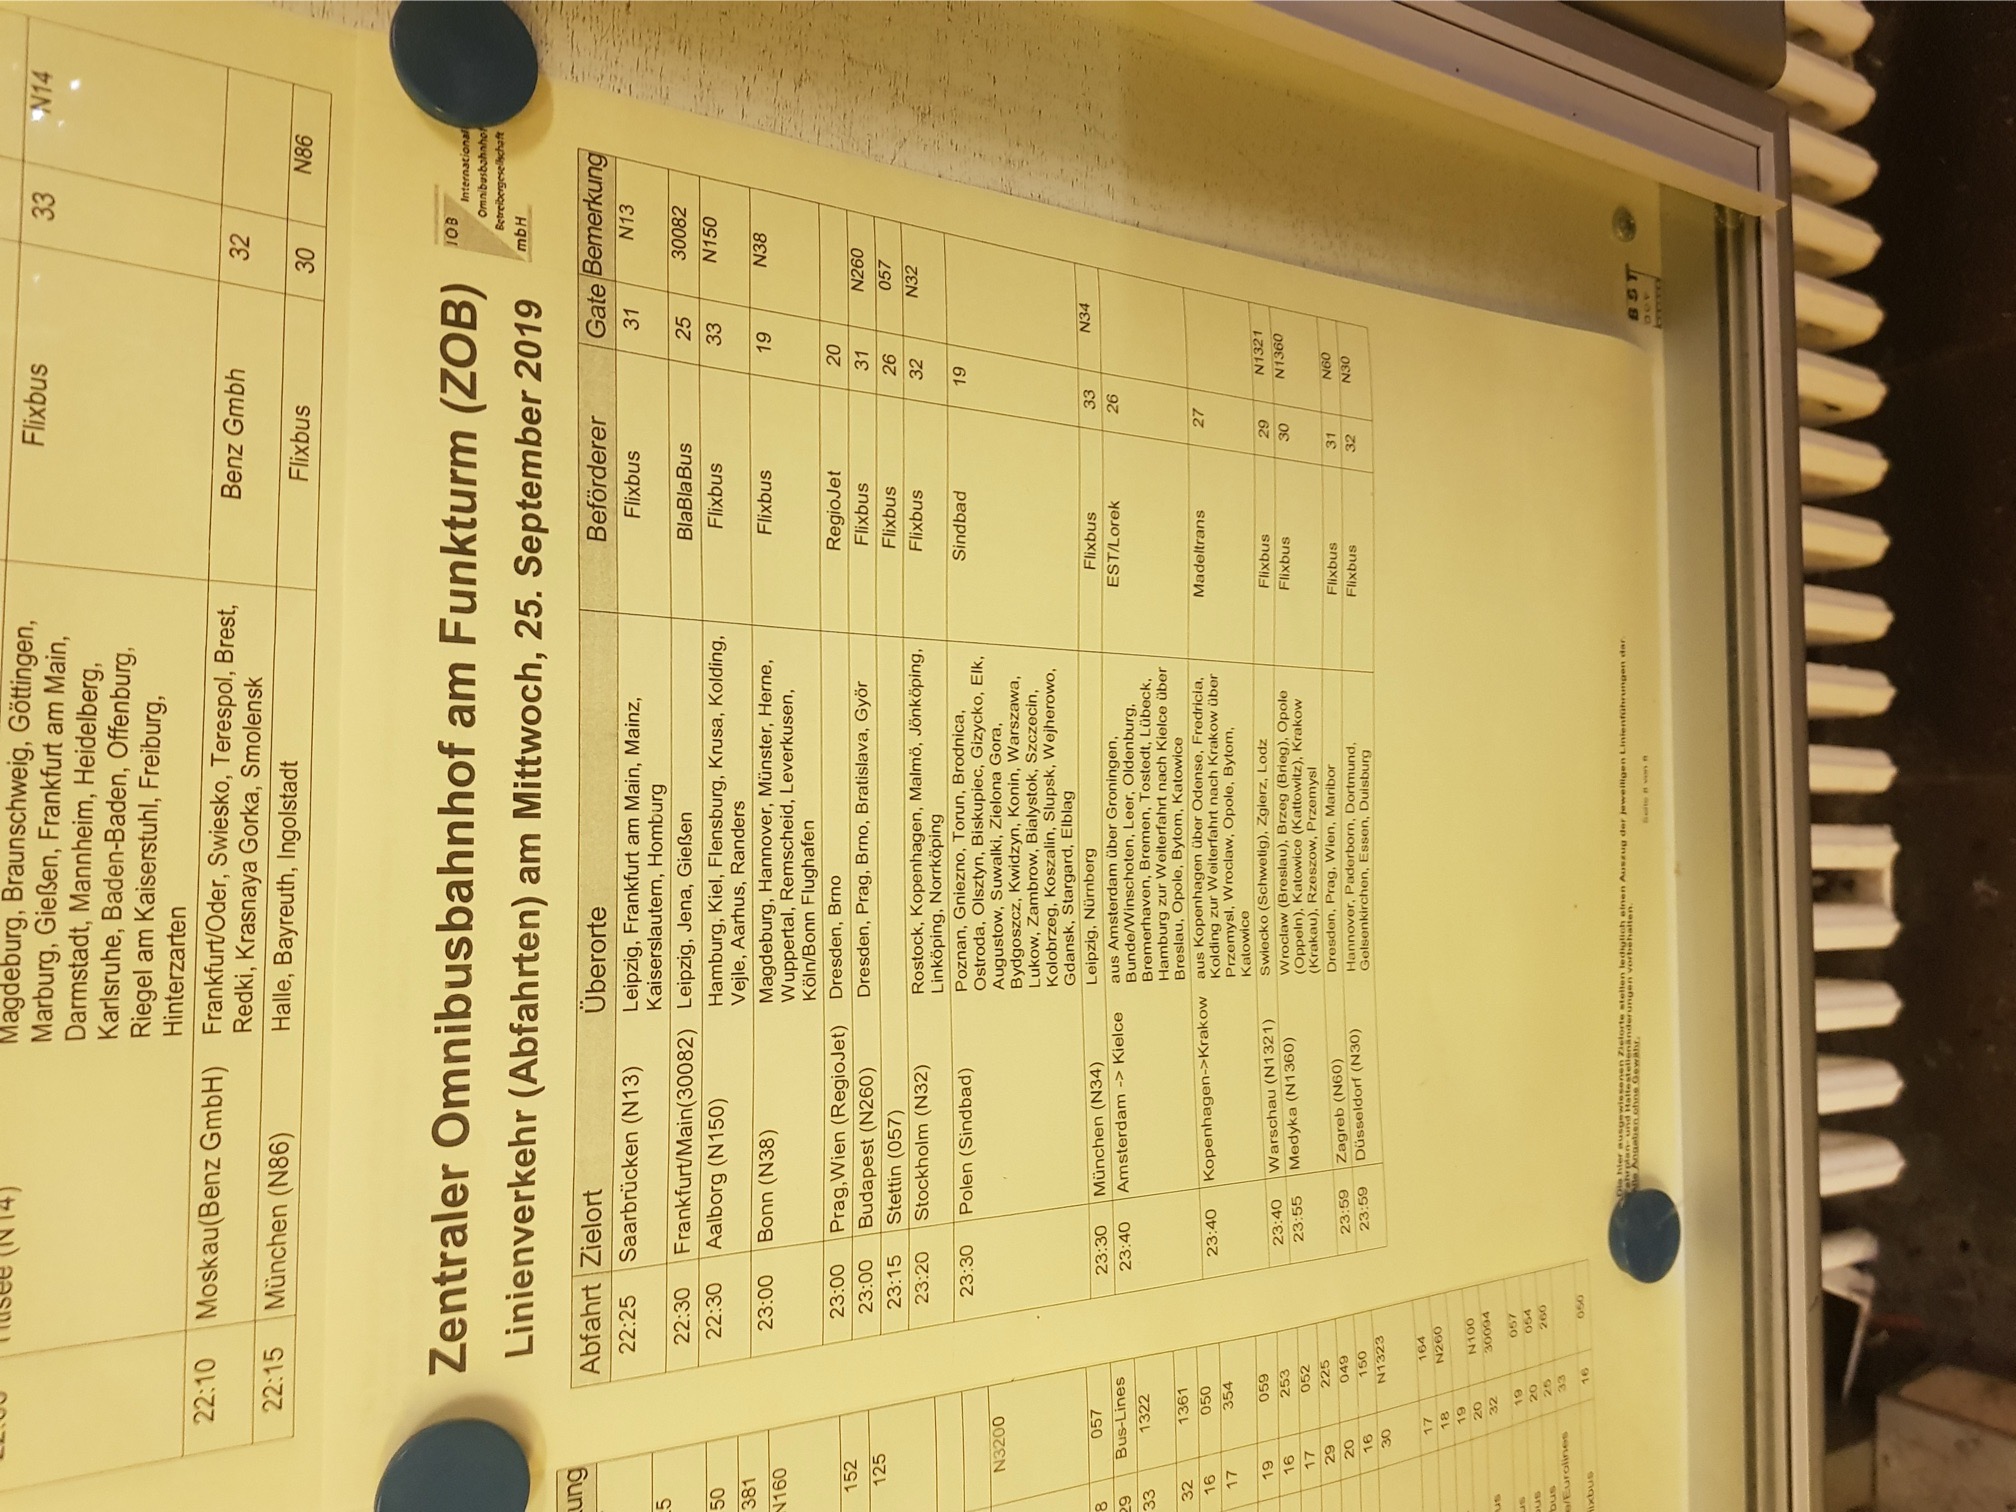 N14
33
Flixbus
Magdeburg, Braunschweig, Göttingen,
Marburg, Gießen, Frankfurt am Main,
Darmstadt, Mannheim, Heidelberg,
Karlsruhe, Baden-Baden, Offenburg,
Riegel am Kaiserstuhl, Freiburg,
Hinterzarten
22:10 Moskau(Benz GmbH) Frankfurt/Oder, Swiesko, Terespol, Brest, Benz Gmbh 32
Redki, Krasnaya Gorka, Smolensk
22:15 München (N86) Halle, Bayreuth, Ingolstadt Flixbus 30 N86
Zentraler Omnibusbahnhof am Funkturm (ZOB)
IOB
International
Omnibusbahnhof
Betreibergesellschaft
mbH
Linienverkehr (Abfahrten) am Mittwoch, 25. September 2019
Abfahrt Zielort Überorte Beförderer Gate Bemerkung
22:25 Saarbrücken (N13) Leipzig, Frankfurt am Main, Mainz, Flixbus 31 N13
Kaiserslautern, Homburg
22:30 Frankfurt/Main(30082) Leipzig, Jena, Gießen BlaBlaBus 25 30082
22:30 Aalborg (N150) Hamburg, Kiel, Flensburg, Krusa, Kolding, Flixbus 33 N150
Vejle, Aarhus, Randers
23:00 Bonn (N38) Magdeburg, Hannover, Münster, Herne, Flixbus 19 N38
Wuppertal, Remscheid, Leverkusen,
Köln/Bonn Flughafen
23:00 Prag,Wien (RegioJet) Dresden, Brno RegioJet 20
23:00 Budapest (N260) Dresden, Prag, Brno, Bratislava, Györ Flixbus 31 N260
23:15 Stettin (057) Flixbus 26 057
23:20 Stockholm (N32) Rostock, Kopenhagen, Malmö, Jönköping, Flixbus 32 N32
Linköping, Norrköping
23:30 Polen (Sindbad) Poznan, Gniezno, Torun, Brodnica, Sindbad 19
Ostroda, Olsztyn, Biskupiec, Gizycko, Elk,
Augustow, Suwalki, Zielona Gora,
Bydgoszcz, Kwidzyn, Konin, Warszawa,
Lukow, Zambrow, Bialystok, Szczecin,
Kolobrzeg, Koszalin, Slupsk, Wejherowo,
Gdansk, Stargard, Elblag
23:30 München (N34) Leipzig, Nürnberg Flixbus 33 N34
23:40 Amsterdam -> Kielce aus Amsterdam über Groningen, EST/Lorek 26
Bunde/Winschoten, Leer, Oldenburg,
Bremerhaven, Bremen, Tostedt, Lübeck,
Hamburg zur Weiterfahrt nach Kielce über
Breslau, Opole, Bytom, Katowice
23:40 Kopenhagen->Krakow aus Kopenhagen über Odense, Fredricia, Madeltrans 27
Kolding zur Weiterfahrt nach Krakow über
Przemysl, Wroclaw, Opole, Bytom,
Katowice
23:40 Warschau (N1321) Swiecko (Schwetig), Zgierz, Lodz Flixbus 29 N1321
23:55 Medyka (N1360) Wroclaw (Breslau), Brzeg (Brieg), Opole Flixbus 30 N1360
(Oppeln), Katowice (Kattowitz), Krakow
(Krakau), Rzeszow, Przemysl
23:59 Zagreb (N60) Dresden, Prag, Wien, Maribor Flixbus 31 N60
23:59 Düsseldorf (N30) Hannover, Paderborn, Dortmund, Flixbus 32 N30
Gelsenkirchen, Essen, Duisburg
Die hier ausgewiesenen Zielorte stellen lediglich einen Auszug der jeweiligen Linienführungen dar.
Fahrplan- und Haltestellenänderungen vorbehalten.
Alle Angaben ohne Gewähr.
Seite 8 von 8
BST
381
N160
152
125
N3200
057
Bus-Lines
33 1322
32 1361
16 050
17 354
19 059
16 253
17 052
29 225
20 049
16 150
30 N1323
17 164
18 N260
19
20 N100
32 30094
19 057
20 054
25 260
33
16 050